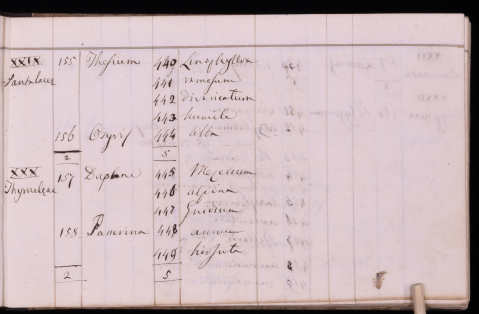 XXIX 155 Thesium 440 Linophyllon
Santalacee 441 ramosum
442 divaricatum
443 humile
156 Osyris 444 alba
2 5
XXX 157 Daphne 445 Mezereum
Thymeleae 446 alpina
447 Gnidium
158 Passerina 448
449 hirsuta
2 5